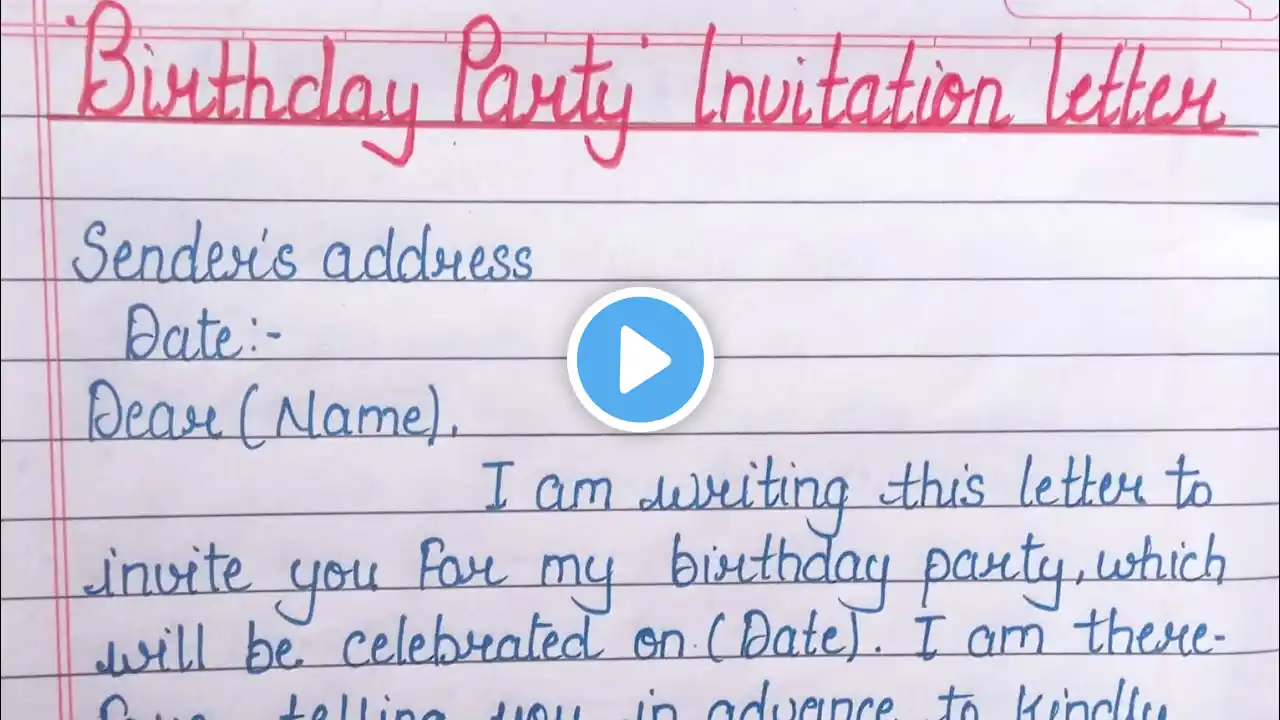 Birthday Party Invitation letter
Sender's address
Date:-
Dear (Name),
I am writing this letter to
invite you For my birthday party, which
will be celebrated on (Date). I am there-
fore telling you in advance to kindly